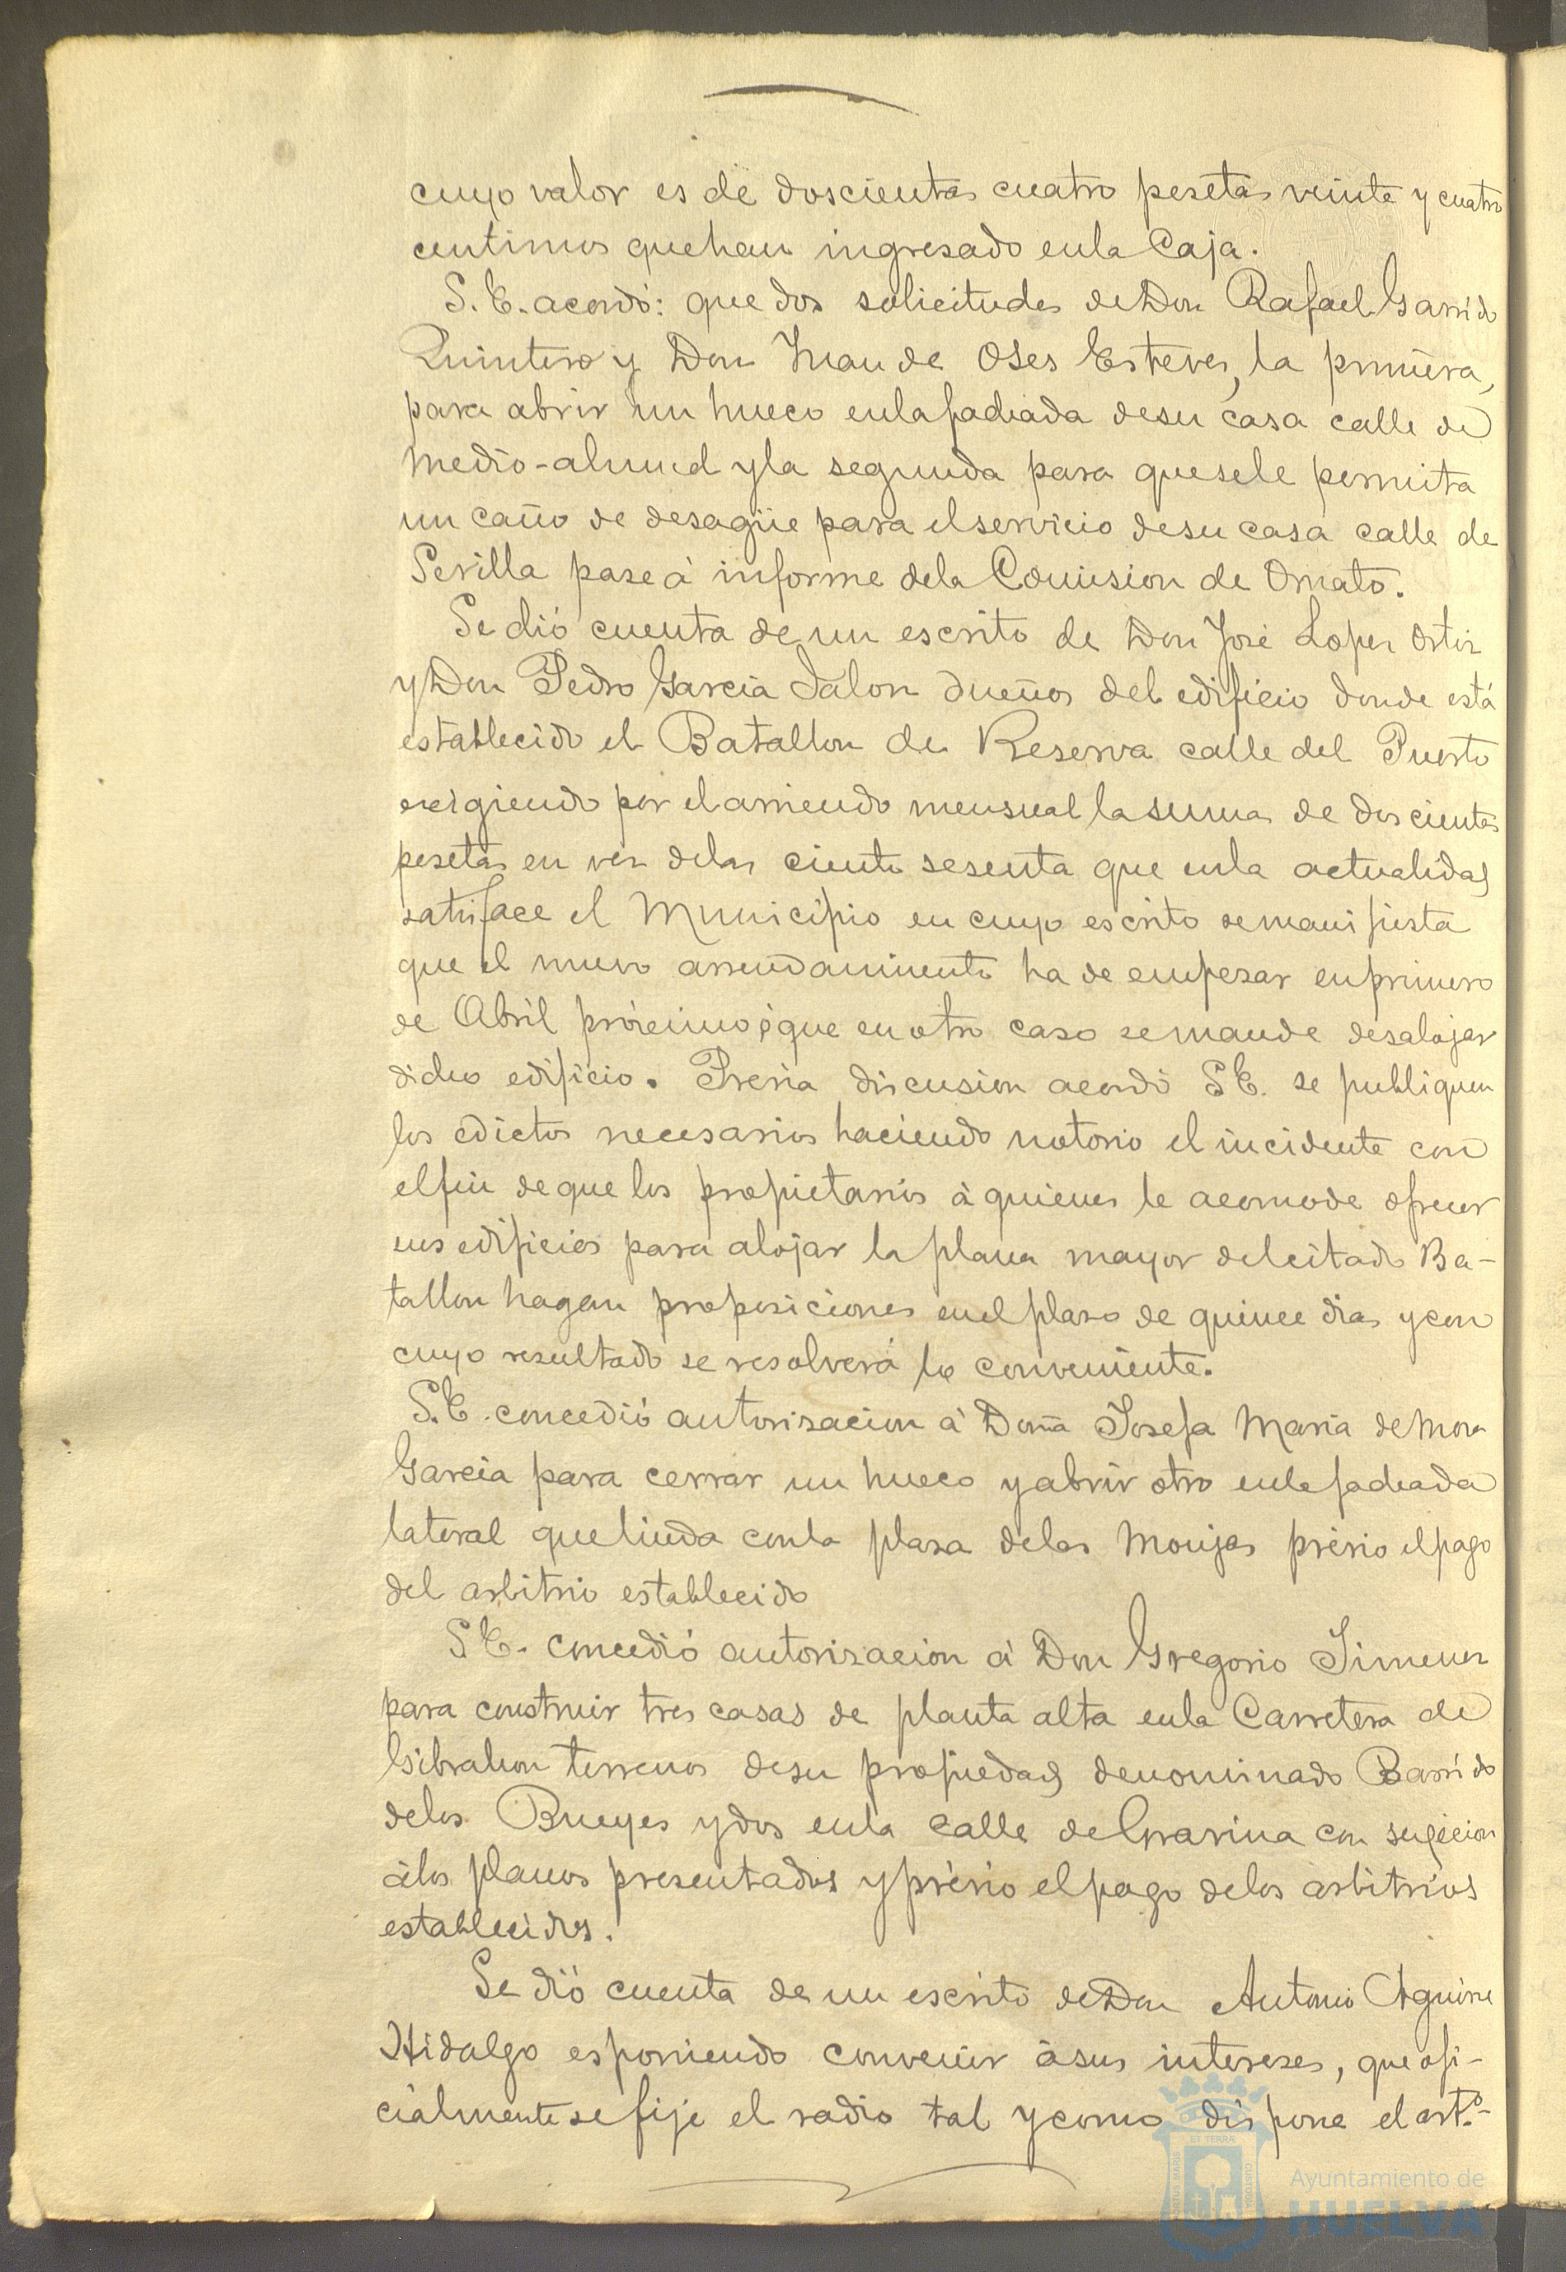 cuyo valor es de doscientas cuatro pesetas veinte y cuatro
centimos que han ingresado en la Caja.
S. E. acordó: que dos solicitudes de Don Rafael Garrido
Quintero y Don Juan de Oses Esteves, la primera,
para abrir un hueco en la fachada de su casa calle de
Medio-almud y la segunda para que se le permita
un caño de desagüe para el servicio de su casa calle de
Sevilla pase à informe de la Comision de Ornato.
Se dió cuenta de un escrito de Don José Lopez Ortiz
y Don Pedro Garcia Jalon dueños del edificio donde está
establecido el Batallon de Reserva calle del Puerto
exigiendo por el arriendo mensual la suma de doscientas
pesetas en vez de las ciento sesenta que en la actualidad
satisface el Municipio en cuyo escrito se manifiesta
que el nuevo arrendamiento ha de empezar en primero
de Abril próximo ó que en otro caso se mande desalojar
dicho edificio. Previa discusion acordó S E. se publiquen
los edictos necesarios haciendo notorio el incidente con
el fin de que los propietarios à quienes le acomode ofrecer
sus edificios para alojar la plana mayor del citado Ba-
tallon hagan proposiciones en el plazo de quince dias y con
cuyo resultado se resolverá lo conveniente.
S. E. concedió autorizacion à Doña Josefa Maria de Mora
Garcia para cerrar un hueco y abrir otro en la fachada
lateral que linda con la plaza de las Monjas prévio el pago
del arbitrio establecido
S E. concedió autorizacion à Don Gregorio Jimenez
para construir tres casas de planta alta en la Carretera de
Gibraleon terrenos de su propiedad denominado Barrido
de los Bueyes y dos en la calle de Gravina con sugecion
à los planos presentados y prévio el pago de los arbitrios
establecidos.
Se dió cuenta de un escrito de Don Antonio Aguirre
Hidalgo esponiendo convenir à sus intereses, que ofi-
cialmente se fije el radio tal y como dispone el art.º-
Ayuntamiento de
HUELVA